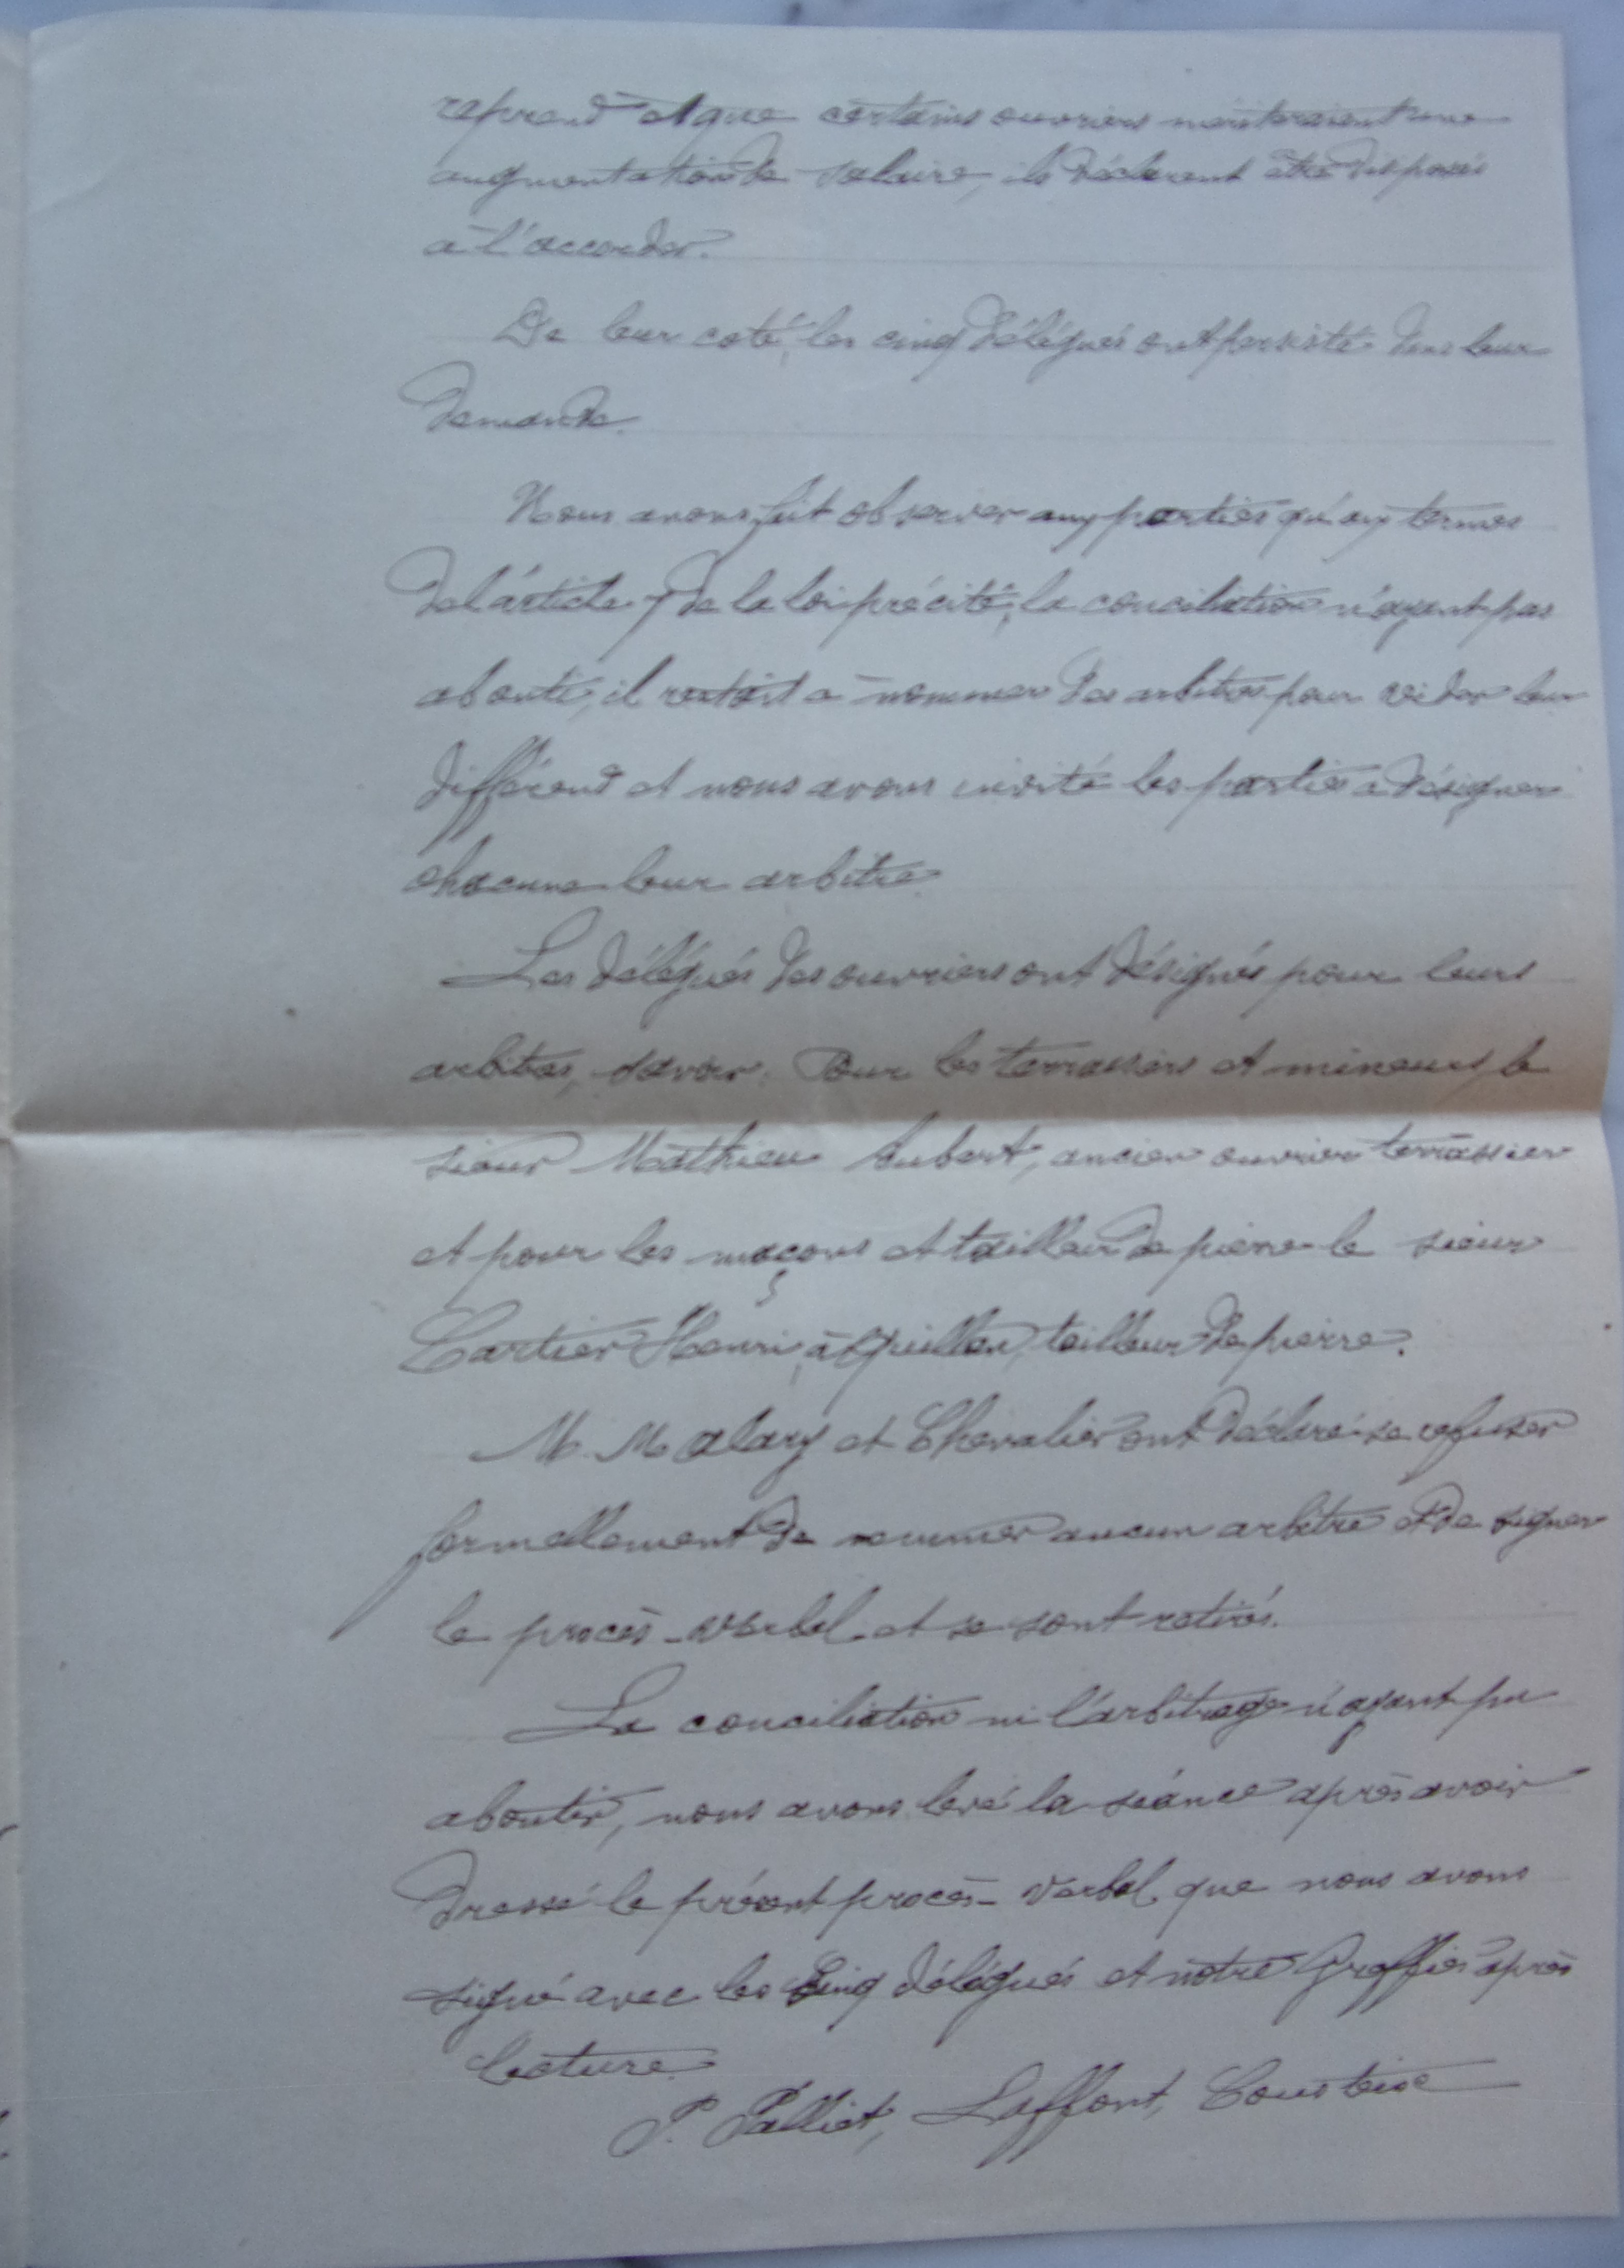 reprend et que certains ouvriers mériteraient une
augmentation de salaire, ils déclarent être disposés
à l'accorder.
De leur coté, les cinq délégués ont persisté dans leur
demande.
Nous avons fait observer aux parties qu'aux termes
de l'article 7 de la loi précité, la conciliation n'ayant pas
abouti, il restait à nommer des arbitres pour vider leur
différend et nous avons invité les parties à désigner
chacune leur arbitre
Les délégués des ouvriers ont désignés pour leurs
arbitres, savoir: Pour les terrassiers et mineurs, le
sieur Mathieu Aubert, ancien ouvrier terrassier
et pour les maçons et tailleur de pierre le sieur
Cartier Henri, à Quillan, tailleur de pierre.
M. Malary et Chevalier ont déclaré se refuser
formellement de nommer aucun arbitre et de signer
le procès-verbal et se sont retirés.
La conciliation ni l'arbitrage n'ayant pu
aboutir, nous avons levé la séance après avoir
dressé le présent procès-verbal que nous avons
signé avec les Cinq délégués et notre Greffier après
lecture.
P. Palliet, Laffont, Cousteise